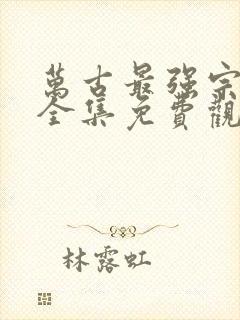 萬古最强宗
全集免費觀
林露虹